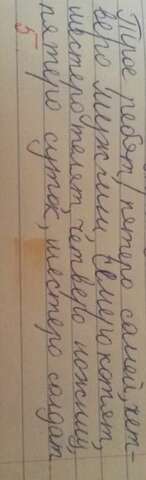 Трое ребят, пятеро саней, чет-
веро мужчин, семеро котят,
шестеро телят, четверо ножниц,
пятеро суток, шестеро солдат.
5